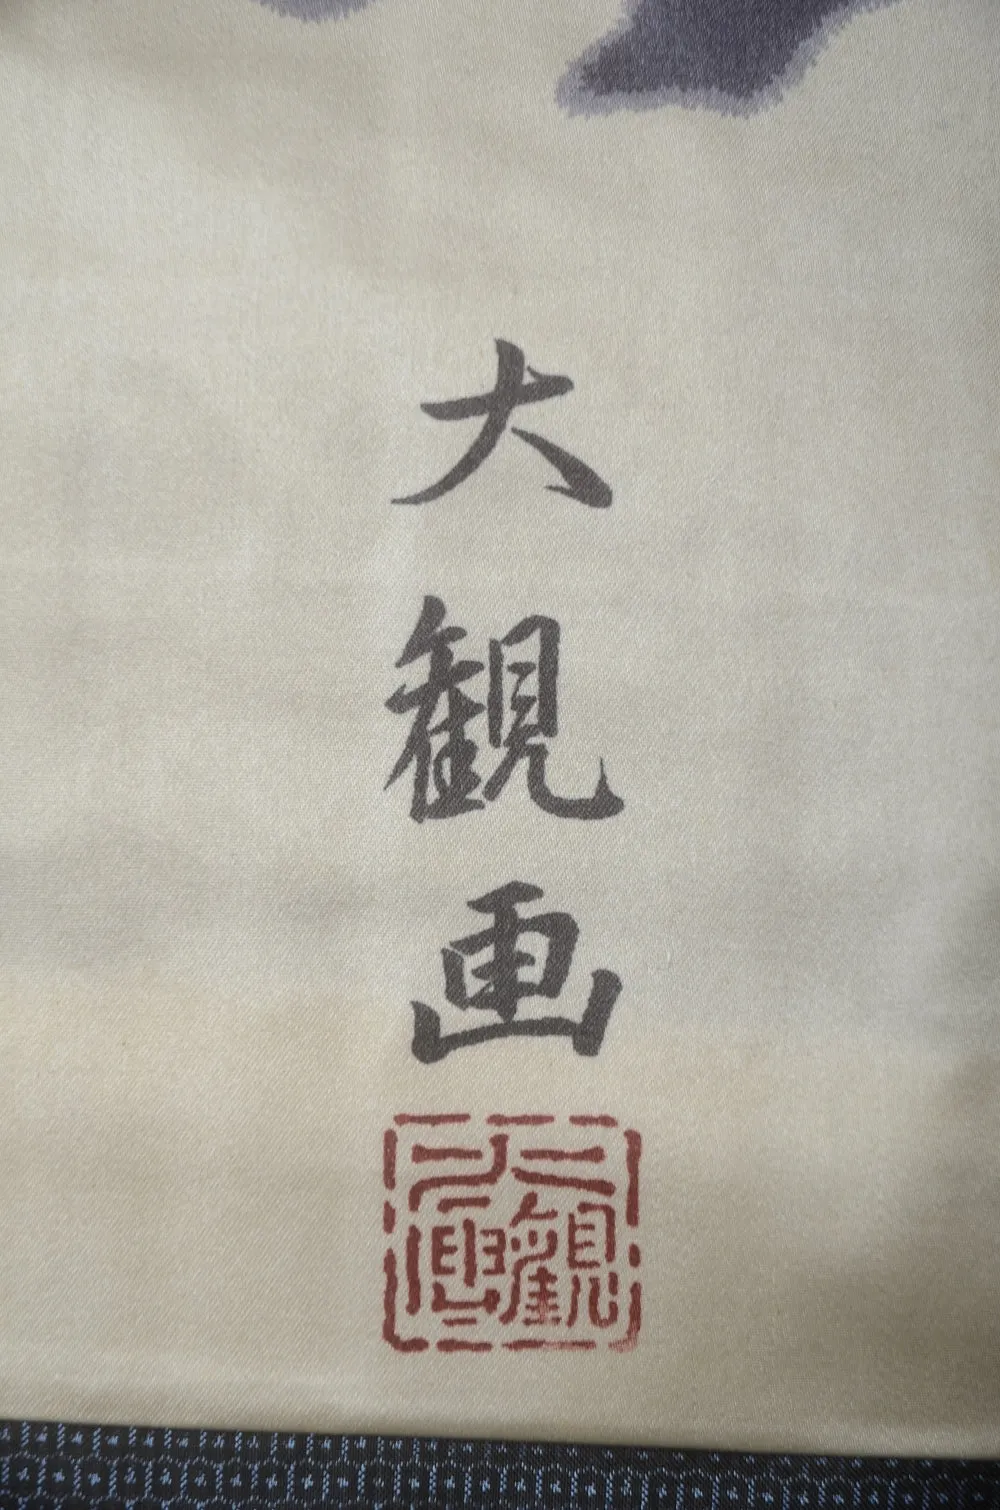 大観画